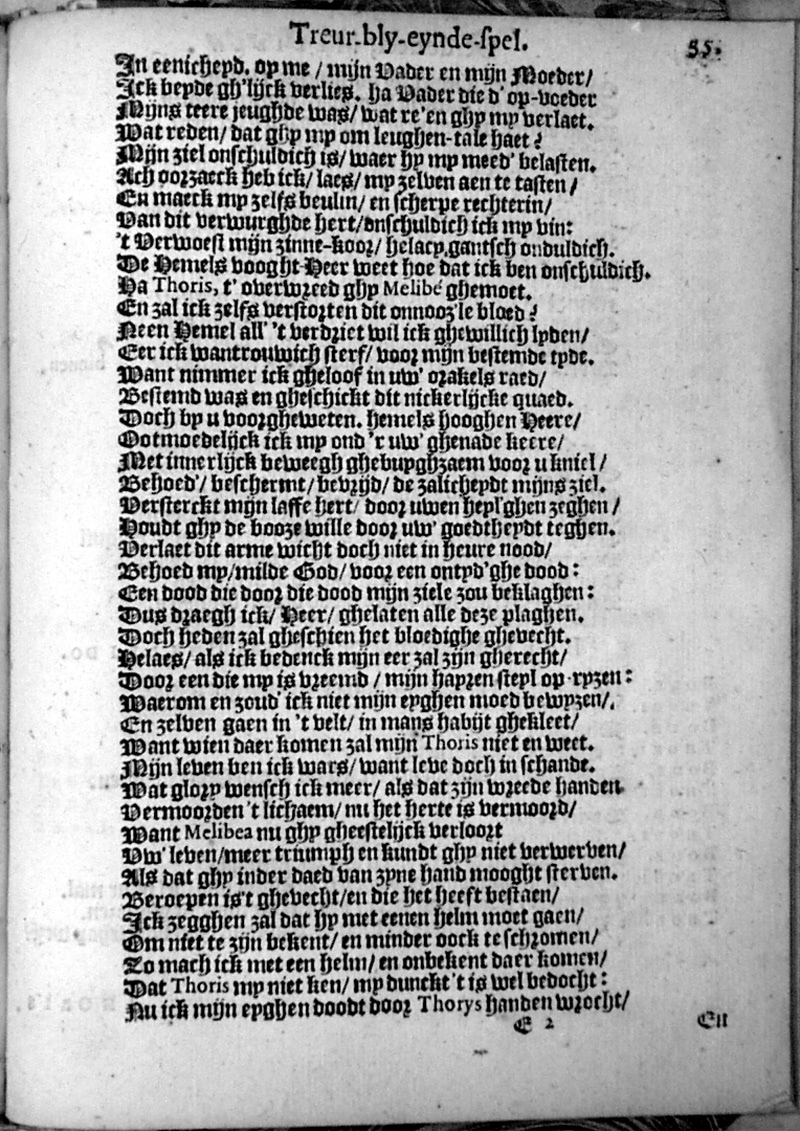 Treur-bly-eynde-spel. 35.
In eenicheyd. op me / mijn Vader en mijn Moeder /
Ick beyde gh'lijck verlies. Ha Vader die d' op-voeder
Mijns teere jeughde was / wat re'en ghy my verlaet.
Wat reden / dat ghy my om leughen-tale haet?
Mijn ziel onschuldich is / waer hy my meed' belasten.
Ach oorzaeck heb ick / laes / my zelven aen te tasten /
En maeck my zelfs beulin / en scherpe rechterin /
Van dit verwurghde hert / onschuldich ick my vin:
't Verwoest mijn zinne-koor / helacy, gantsch onduldich.
De Hemels vooght-Heer weet hoe dat ick ben onschuldich.
Ha Thoris, t' overwreed ghy Melibé ghemoet.
En zal ick zelfs verstorten dit onnooz'le bloed?
Neen Hemel all' 't verdriet wil ick ghewillich lyden /
Eer ick wantrouwich sterf / voor mijn bestemde tyde.
Want nimmer ick gheloof in uw' orakels raed /
Bestemd was en gheschickt dit nickerlijcke quaed.
Doch by u voorgheweten. hemels hooghen Heere /
Ootmoedelijck ick my ond'r uw' ghenade keere /
Met innerlijck beweegh ghebuyghzaem voor u kniel /
Behoed' / beschermt / bevrijd / de zalicheydt mijns ziel.
Versterckt mijn laffe hert / door uwen heyl'ghen zeghen /
Houdt ghy de booze wille door uw' goedtheydt teghen.
Verlaet dit arme wicht doch niet in heure nood /
Behoed my / milde God / voor een ontyd'ghe dood:
Een dood die door die dood mijn ziele zou beklaghen:
Dus draegh ick / Heer / ghelaten alle deze plaghen.
Doch heden zal gheschien het bloedighe ghevecht.
Helaes / als ick bedenck mijn eer zal zijn gherecht /
Door een die my is vreemd / mijn hayren steyl op-ryzen:
Waerom en zoud' ick niet mijn eyghen moed bewyzen /
En zelven gaen in 't velt / in mans habijt ghekleet /
Want wien daer komen zal mijn Thoris niet en weet.
Mijn leven ben ick wars / want leve doch in schande.
Wat glory wensch ick meer / als dat zijn wreede handen
Vermoorden 't lichaem / nu het herte is vermoord /
Want Melibea nu ghy gheestelijck verloort
Uw' leven / meer triumph en kundt ghy niet verwerven /
Als dat ghy inder daed van zyne hand mooght sterven.
Beroepen is't ghevecht / en die het heeft bestaen /
Ick zegghen zal dat hy met eenen helm moet gaen /
Om niet te zijn bekent / en minder oock te schromen /
Zo mach ick met een helm / en onbekent daer komen /
Dat Thoris my niet ken / my dunckt 't is wel bedocht:
Nu ick mijn eyghen doodt door Thorys handen wrocht /
E 2 En